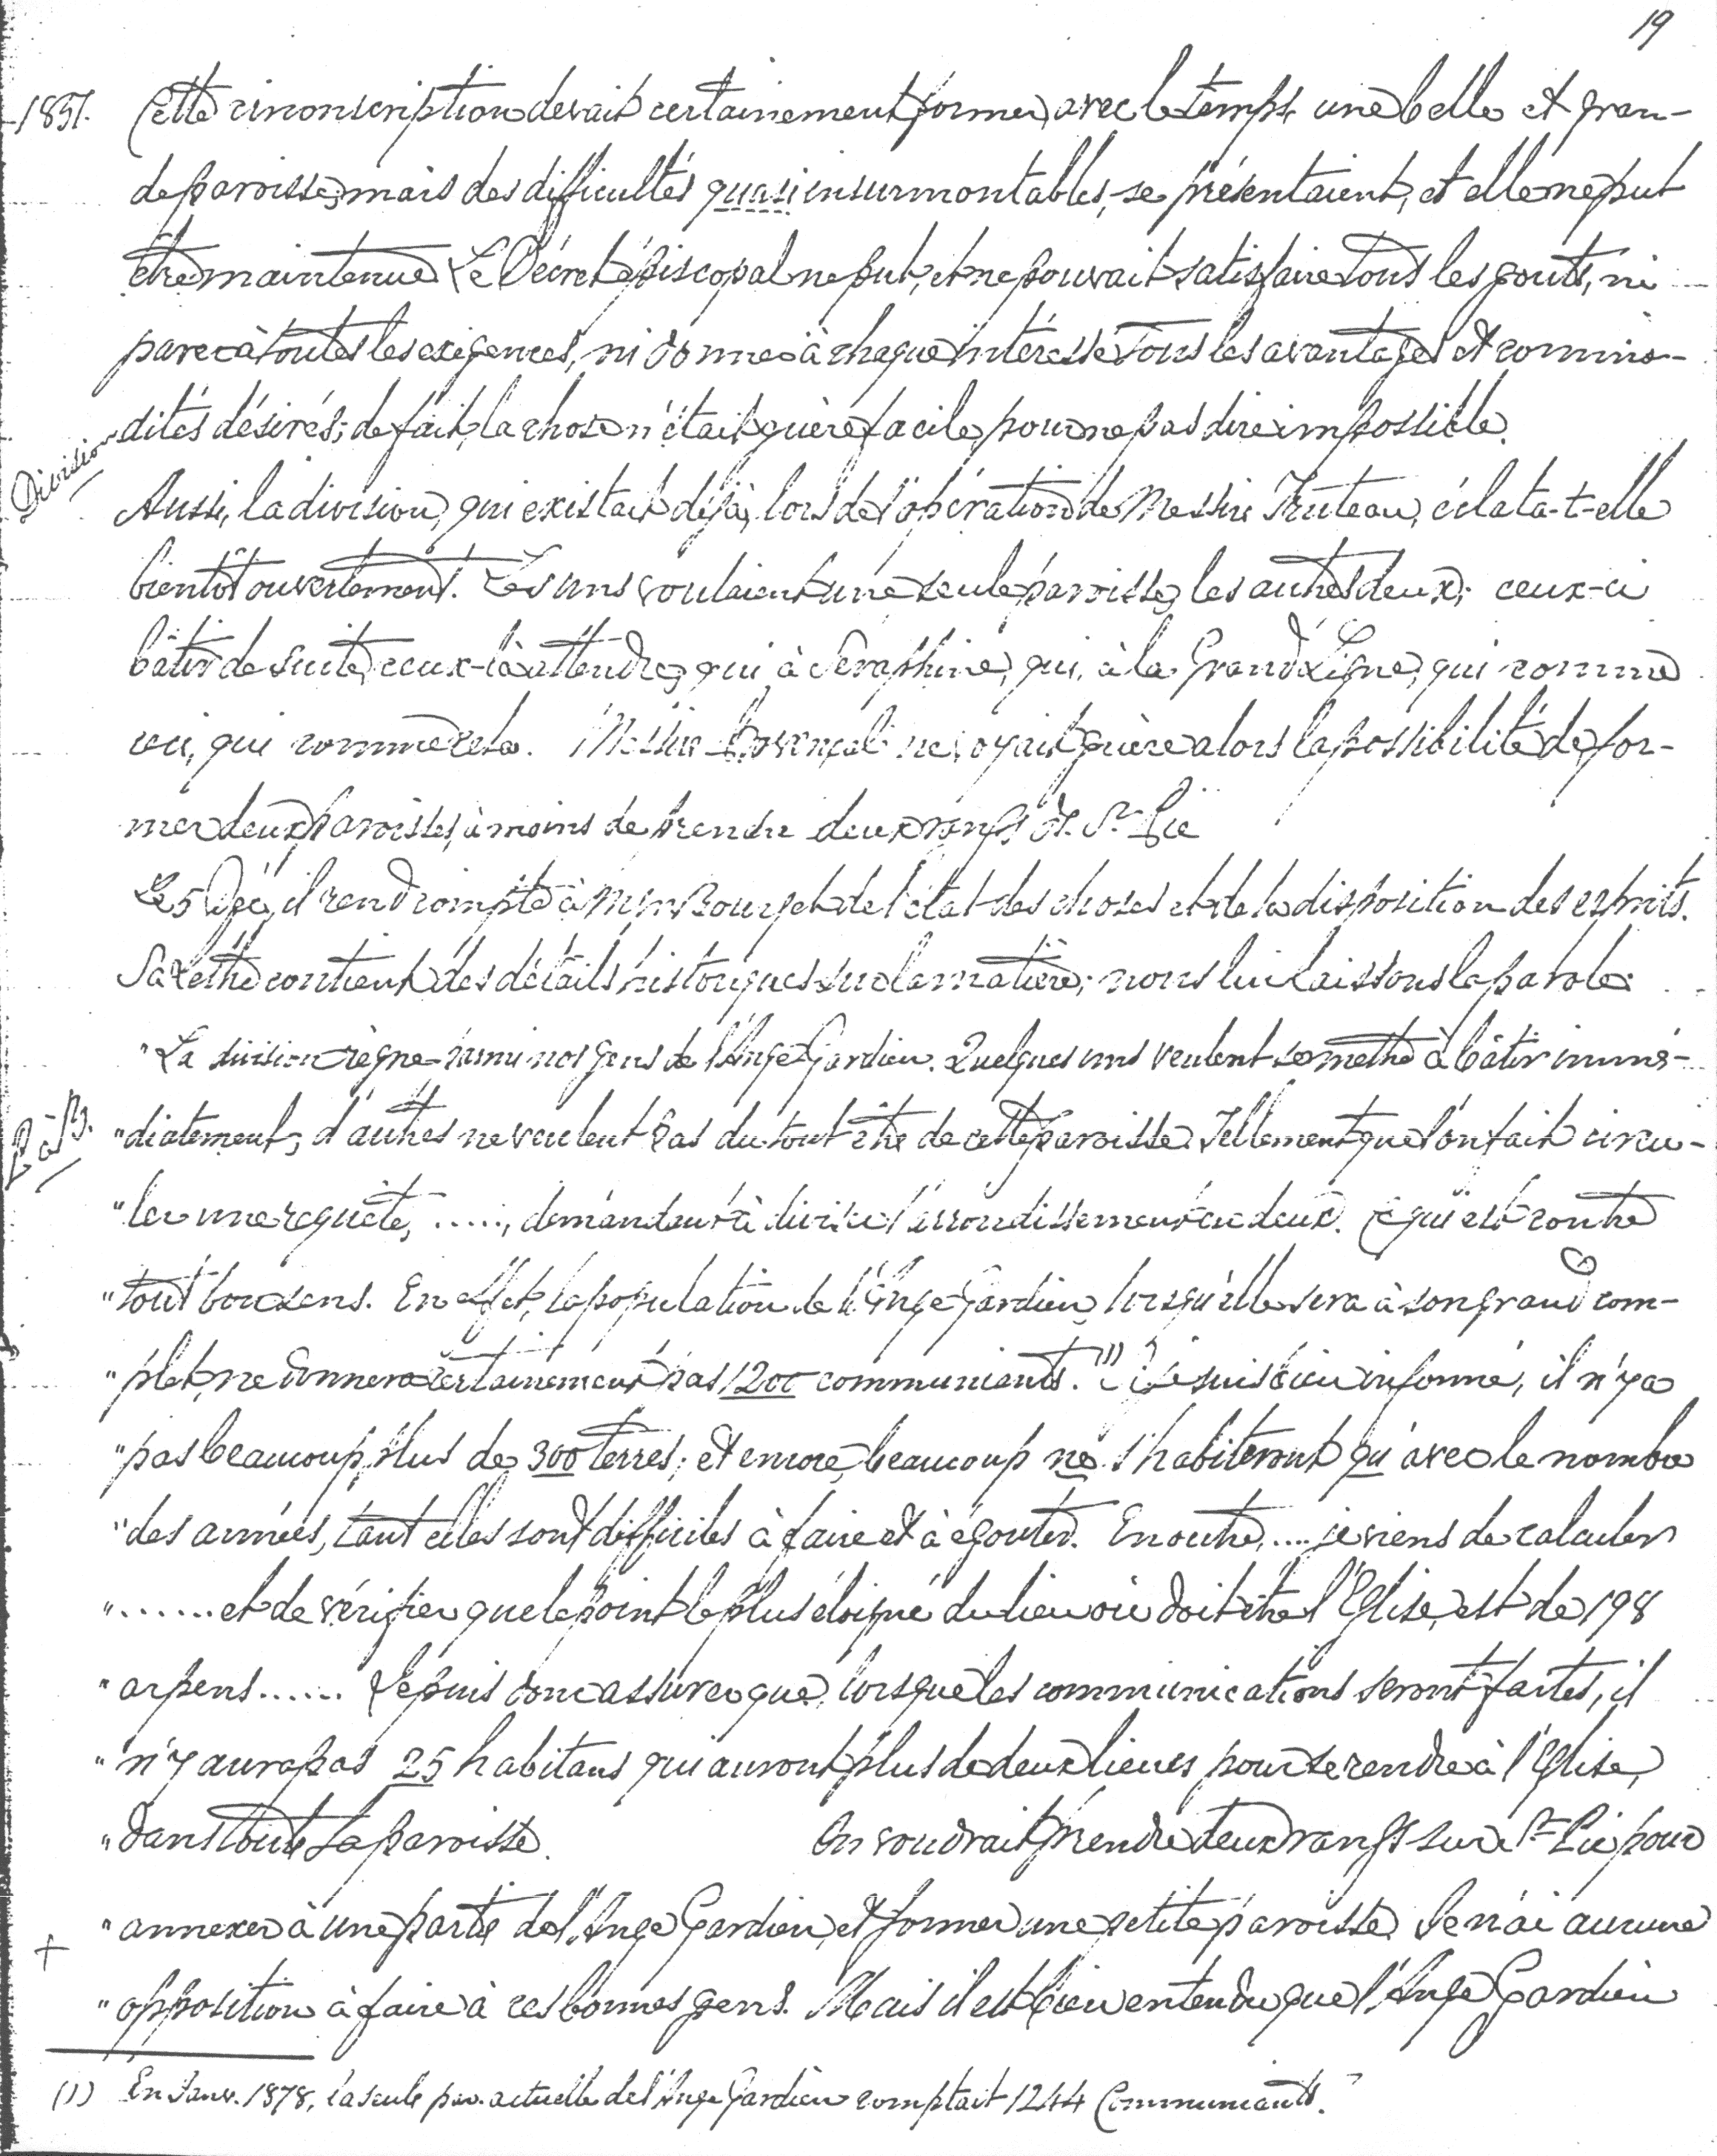 19
1851. Cette circonscription devait certainement former, avec le temps, une belle et gran-
de paroisse; mais des difficultés quasi insurmontables, se présentaient, et elle ne put
être maintenue. Le Décret épiscopal ne put, et ne pouvait satisfaire tous les gouts, ni
parer à toutes les exigences, ni donner à chaque intéressé tous les avantages et commo-
dités désirés; de fait, la chose n'était guère facile, pour ne pas dire impossible.
Division
Aussi, la division, qui existait déjà, lors de l'opération de Messire Truteau, éclata-t-elle
bientôt ouvertement. Les uns voulaient une seule paroisse, les autres deux; ceux-ci
bâtir de suite, ceux-là attendre, qui, à Séraphine, qui, à la Grand'Ligne, qui comme
ceci, qui comme cela. Messire Provençal ne voyait guère alors la possibilité de for-
mer deux paroisses, à moins de prendre deux rangs de St Pie
Le 5 Déc, il rend compte à Mgr Bourget de l'état des choses et de la disposition des esprits.
Sa lettre contient des détails historiques sur la matière; nous lui laissons la parole:
"La division règne parmi nos gens de l'Ange Gardien. Quelques uns veulent se mettre à bâtir immé-
"diatement; d'autres ne veulent pas du tout être de cette paroisse. Tellement que l'on fait circu-
"ler une requête, ....., demandant à diviser l'arrondissement en deux. Ce qui est contre
"tout bon sens. En effet, la population de l'Ange Gardien, lorsqu'elle sera à son grand com-
"plet, ne donnera certainement pas 1200 communiants. (1) Si je suis bien informé, il n'y a
"pas beaucoup plus de 300 terres; et encore, beaucoup ne s'habiteront qu'avec le nombre
"des années, tant elles sont difficiles à faire et à égouter. En outre, .... je viens de calculer
"...... et de vérifier que le point le plus éloigné du lieu où doit être l'Eglise, est de 198
"arpens ...... Je puis donc assurer que, lorsque les communications seront faites, il
"n'y aura pas 25 habitans qui auront plus de deux lieues pour se rendre à l'Eglise,
"dans toute la paroisse. On voudrait prendre deux rangs sur St Pie pour
"annexer à une partie de l'Ange Gardien, et former une petite paroisse. Je n'ai aucune
+
"opposition à faire à ces bonnes gens. Mais il est bien entendu que l'Ange Gardien
(1) En Janv. 1878, la seule par. actuelle de l'Ange Gardien comptait 1244 Communiants.